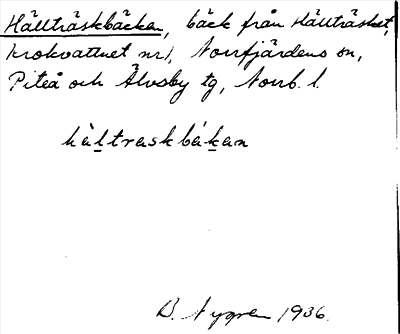 Hällträskbäcken, bäck från Hällträsket,
Krokvattnet nr 1, Norrfjärdens sn,
Piteå och Älvsby tg, Norrb. l.
hàltraskbákan
D. Nygren 1936.